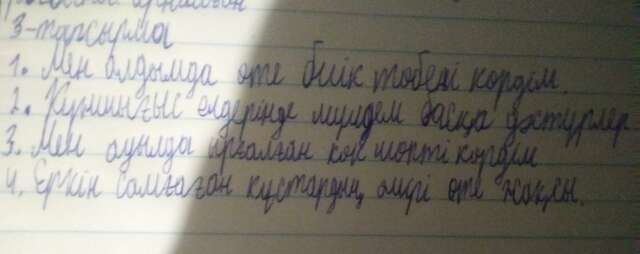 3-тапсырма
1. Мен алдымда өте биік төбені көрдім.
2. Күншығыс елдерінде мүлдем басқа дәстүрлер
3. Мен ауылда ырғалған көк шөпті көрдім
4. Еркін самғаған құстардың әнүрі өте жақсы.